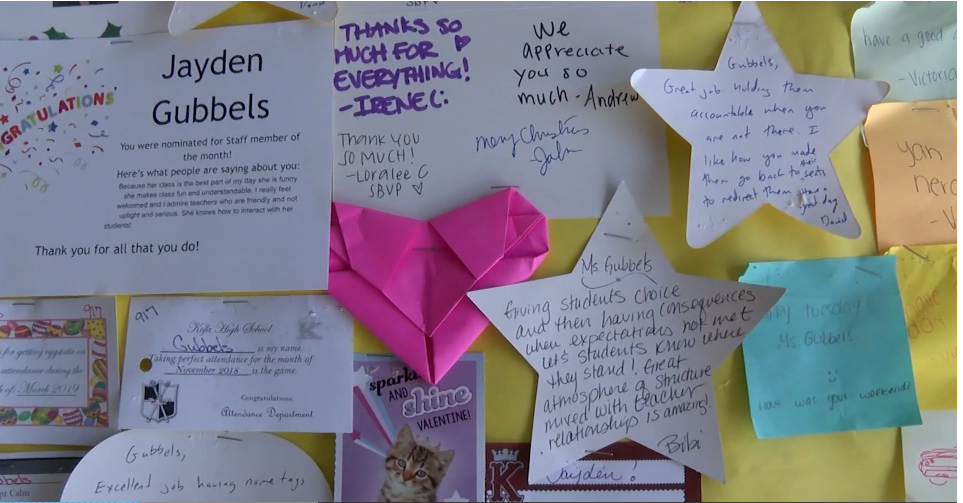 CONGRATULATIONS
Jayden
Gubbels
You were nominated for Staff member of
the month!
Here's what people are saying about you:
Because her class is the best part of my day she is funny
she makes class fun and understandable, I really feel
welcomed and I admire teachers who are friendly and not
uptight and serious. She knows how to interact with her
students!
Thank you for all that you do!
SBVP
THANKS SO
MUCH FOR
EVERYTHING!
-IRENE C.
We
appreciate
you so
much - Andrew
THANK YOU
SO MUCH!
-Loralee C
SBVP
Merry Christmas
John
Gubbels,
Great job holding them
accountable when you
are not there. I
like how you made
them go back to their seats
to redirect them
David
have a good
- Victoria
Ms. Gubbels
Giving students choice
and then having consequences
when expectations not met
let's students know where
they stand! Great
atmosphere & structure
mixed with teacher
relationship is amazing!
Bibi
tuesday
Ms. Gubbels
How was your weekend
917
for getting
attendance during the
of: March 2019
917
Kofa High School
K
Gubbels is my name.
Taking perfect attendance for the month of
November 2018 is the game.
Congratulations,
Attendance Department
sparkle
AND
shine
VALENTINE!
K
Jayden!
Gubbels,
Excellent job having name tags